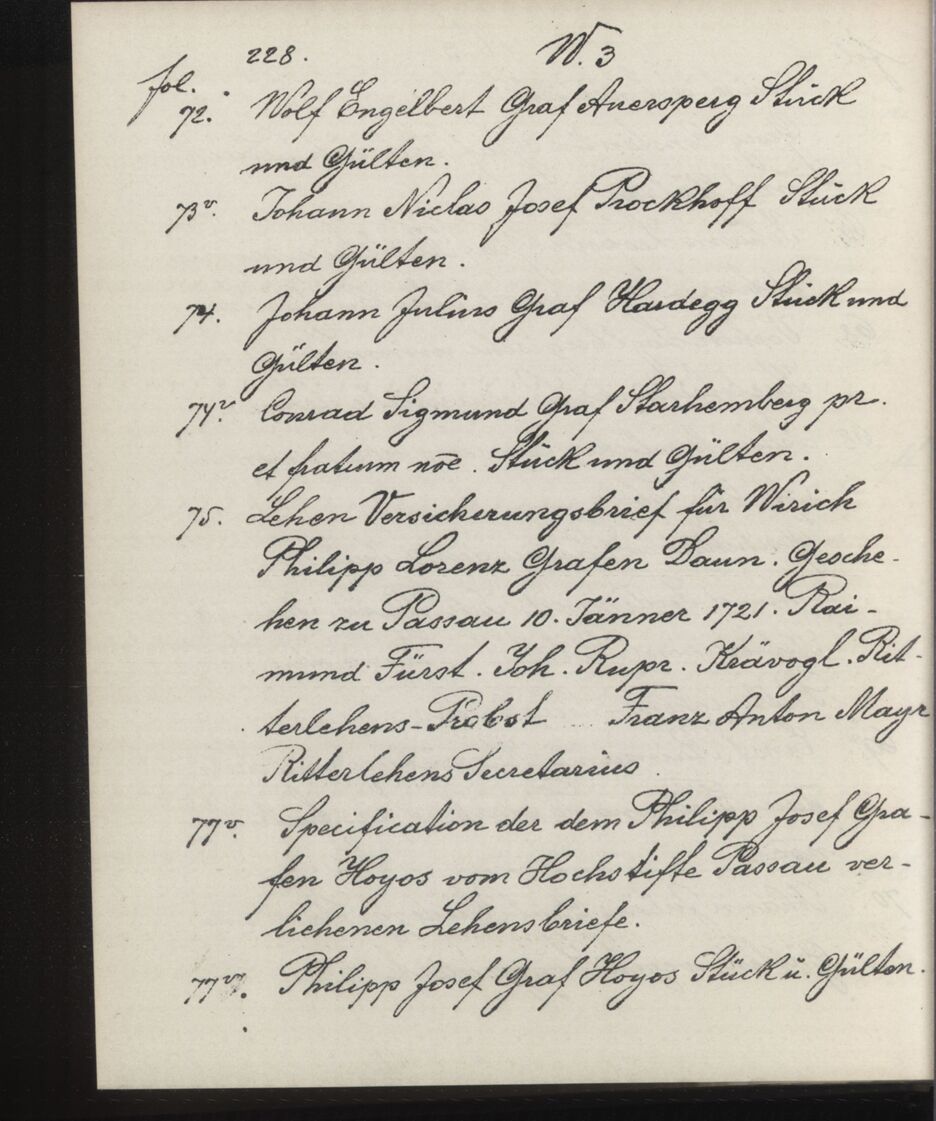 228. W. 3
fol.
72. Wolf Engelbert Graf Auersperg Stück
und Gülten.
73v. Johann Niclas Josef Prockhoff Stück
und Gülten.
74. Johann Julius Graf Hardegg Stück und
Gülten.
74v. Conrad Sigmund Graf Starhemberg pr.
et fratrum noe. Stück und Gülten.
75. Lehen Versicherungsbrief für Wirich
Philipp Lorenz Grafen Daun. Gesche-
hen zu Passau 10. Jänner 1721. Rai-
mund Fürst. Joh. Rupr. Krävogl. Rit-
terlehens-Probst Franz Anton Mayr
Ritterlehens Secretarius.
77v. Specification der dem Philipp Josef Gra-
fen Hoyos vom Hochstifte Passau ver-
liehenen Lehensbriefe.
77v. Philipp Josef Graf Hoyos Stück u. Gülten.